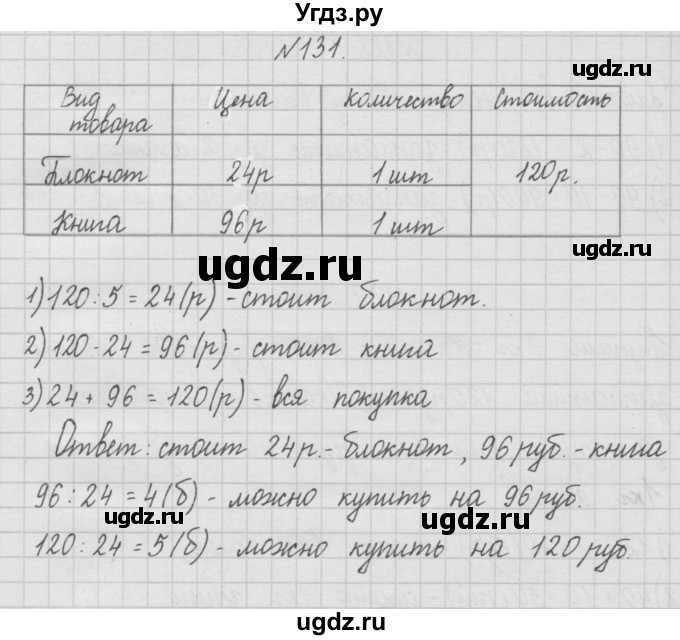 Угдз.ру
N131.
ugdz.ru
Вид товара Цена Количество Стоимость
Блокнот 24р 1 шт 120р.
ugdz.ru
Книга 96р 1 шт
ugdz.ru
ugdz.ru
1) 120:5=24(р)-стоит блокнот.
2) 120-24=96(р)-стоит книга
3) 24+96=120(р)-вся покупка
Ответ: стоит 24р.-блокнот, 96руб.-книга
96:24=4(б)-можно купить на 96руб.
ugdz.ru ugdz.ru
120:24=5(б)-можно купить на 120руб.
ugdz.ru ugdz.ru